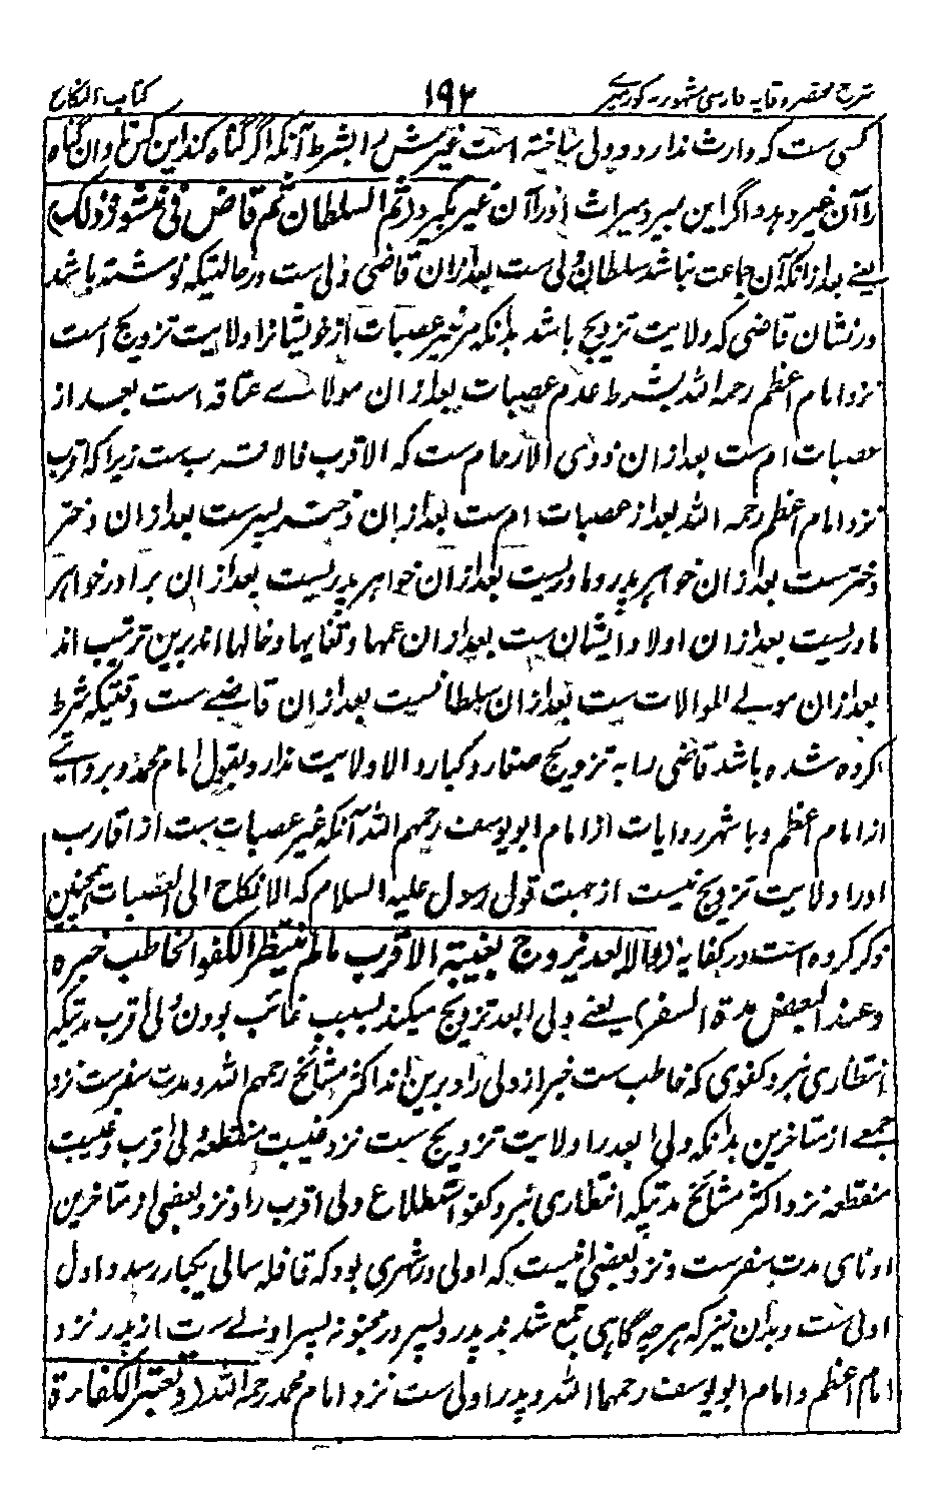 شرح مختصر وقایه فارسی مشهور به کور میر ۱۹۲ کتاب النکاح
کسی ست که وارث ندارد و ولی ساخته است غیرش را بشرط آنکه اگر گناه کند این کس تاوان گناه
را آن غیر دهد و اگر این بمیرد میراث او را آن غیر بگیرد (ثم السلطان ثم قاض فی منشوره ذلک)
یعنے بعد ازانکه آن جماعت نباشد سلطان ولی ست بعد ازان قاضی ولی ست در حالتیکه نوشته باشد
در نشان قاضی که ولایت تزویج باشد بدانکه مر غیر عصبات از خویشانرا ولایت تزویج است
نزد امام اعظم رحمه الله بشرط عدم عصبات بعد ازان مولاے عتاقه است بعد از
عصبات ام ست بعد ازان ذوی الارحام ست که الاقرب فالاقرب ست زیرا که اقرب
نزد امام اعظم رحمه الله بعد از عصبات ام ست بعد ازان دختر پسر ست بعد ازان دختر
دختر ست بعد ازان خواهر پدر و مادریست بعد ازان خواهر پدریست بعد ازان برادر خواهر
مادریست بعد ازان اولاد ایشان ست بعد ازان عمها و تغایها و خالها اند برین ترتیب اند
بعد ازان مولے الموالات ست بعد ازان سلطانست بعد ازان قاضے ست وقتیکه شرط
کرده شده باشد قاضی را به تزویج صغار و کبار و الا ولایت ندارد و بقول امام محمد و بروایتے
از امام اعظم و باشهر روایات از امام ابو یوسف رحمهم الله آنکه غیر عصبات ست از اقارب
او را ولایت تزویج نیست از جهت قول رسول علیه السلام که الانکاح الی العصبات همچنین
ذکر کرده است در کفایه (والابعد یزوج بغیبة الاقرب مالم ینتظر الکفو الخاطب خبره
وعند البعض مدة السفر) یعنے ولی ابعد تزویج میکند بسبب غائب بودن ولی اقرب مدتیکه
انتظاری نبرد کفوی که خاطب ست خبر از ولی را و برین اند اکثر مشائخ رحمهم الله و مدت سفر ست نزد
جمعے از متاخرین بدانکه ولی ابعد را ولایت تزویج ست نزد غیبت منقطعه ولی اقرب و غیبت
منقطعه نزد اکثر مشائخ مدتیکه انتظاری نبرد کفو استطلاع ولی اقرب را و نزد بعضی از متاخرین
ادنای مدت سفر ست و نزد بعضی اینست که او در شهری بود که قافله سالی یکبار رسد و اول
اولی ست و بدان نیز که هر چه گاهی جمع شدند پدر و پسر در مجنونه پسر اولے ست از پدر نزد
امام اعظم و امام ابو یوسف رحمهما الله و پدر اولی ست نزد امام محمد رحمه الله (وتعتبر الکفاءة